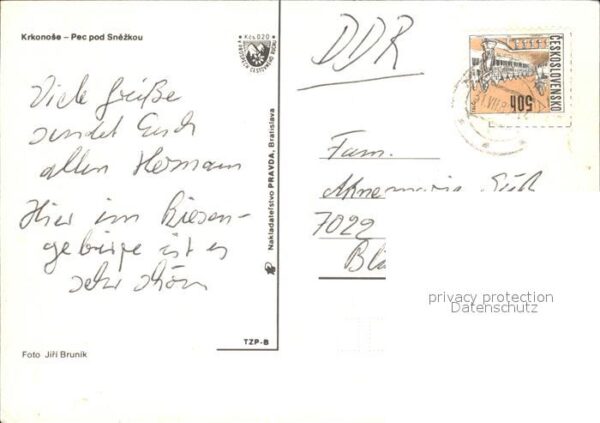 Krkonoše – Pec pod Sněžkou
Viele Grüße
sendet Euch
allen Hermann
Hier im Riesen-
gebirge ist es
sehr schön
Foto Jiří Bruník
TZP-B
Nakladatelstvo PRAVDA, Bratislava
Kčs 0,20
DDR
ČESKOSLOVENSKO
50h
Fam.
7022
privacy protection
Datenschutz